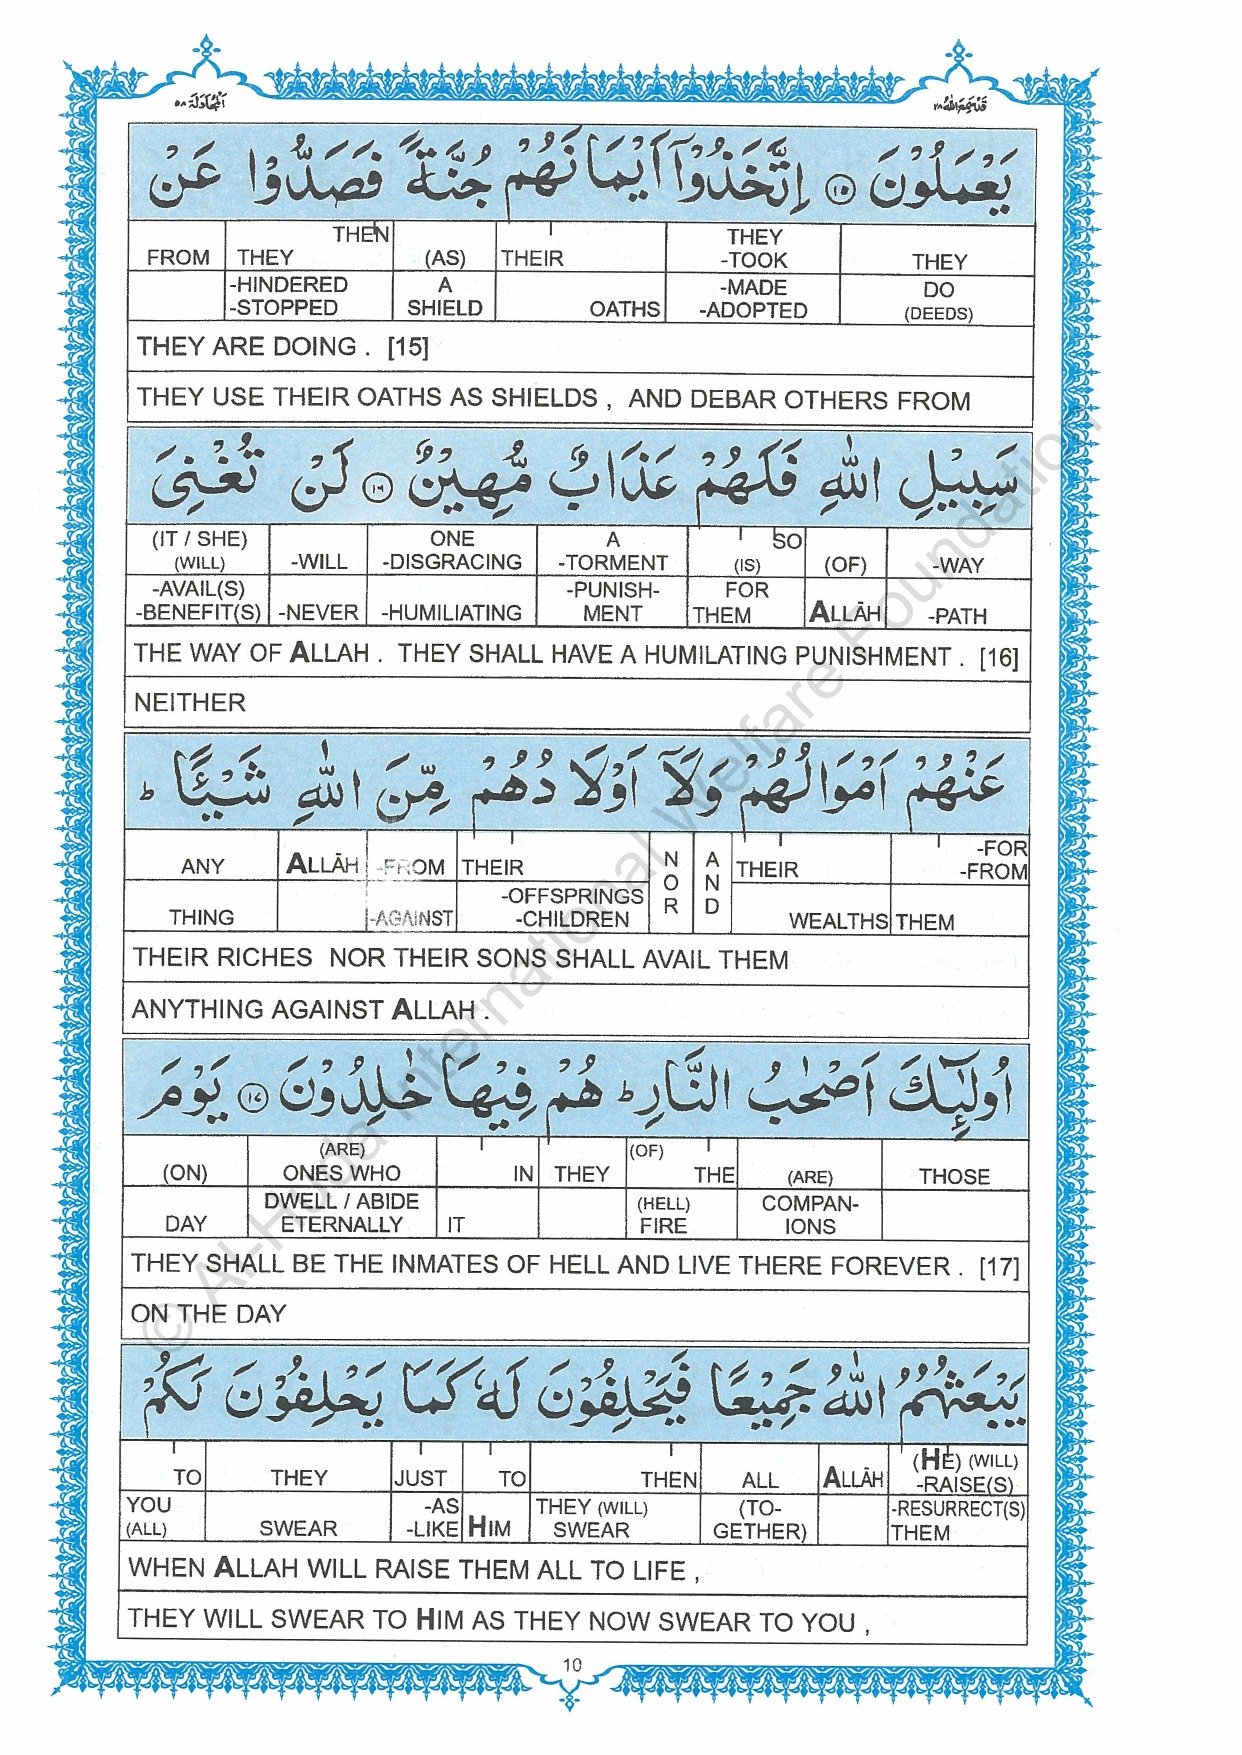 اَلْمُجَادَلَة ٥٨
قَدْ سَمِعَ اللّٰهُ ٢٨
يَعْمَلُوْنَ ١٥ اِتَّخَذُوْٓا اَيْمَانَهُمْ جُنَّةً فَصَدُّوْا عَنْ
FROM THEY THEN (AS) THEIR THEY -TOOK THEY
-HINDERED -STOPPED A SHIELD OATHS -MADE -ADOPTED DO (DEEDS)
THEY ARE DOING . [15]
THEY USE THEIR OATHS AS SHIELDS , AND DEBAR OTHERS FROM
سَبِيْلِ اللّٰهِ فَلَهُمْ عَذَابٌ مُّهِيْنٌ ١٦ لَنْ تُغْنِىَ
(IT / SHE) (WILL) -WILL ONE -DISGRACING A -TORMENT SO (IS) (OF) -WAY
-AVAIL(S) -BENEFIT(S) -NEVER -HUMILIATING -PUNISH- MENT FOR THEM ALLĀH -PATH
THE WAY OF ALLAH . THEY SHALL HAVE A HUMILATING PUNISHMENT . [16]
NEITHER
عَنْهُمْ اَمْوَالُهُمْ وَلَآ اَوْلَادُهُمْ مِّنَ اللّٰهِ شَيْـًٔا ؕ
ANY ALLĀH -FROM THEIR NOR AND THEIR -FOR -FROM
THING -AGAINST -OFFSPRINGS -CHILDREN WEALTHS THEM
THEIR RICHES NOR THEIR SONS SHALL AVAIL THEM
ANYTHING AGAINST ALLAH .
اُولٰٓئِكَ اَصْحٰبُ النَّارِ ؕ هُمْ فِيْهَا خٰلِدُوْنَ ١٧ يَوْمَ
(ON) (ARE) ONES WHO IN THEY (OF) THE (ARE) THOSE
DAY DWELL / ABIDE ETERNALLY IT (HELL) FIRE COMPAN- IONS
THEY SHALL BE THE INMATES OF HELL AND LIVE THERE FOREVER . [17]
ON THE DAY
يَبْعَثُهُمُ اللّٰهُ جَمِيْعًا فَيَحْلِفُوْنَ لَهٗ كَمَا يَحْلِفُوْنَ لَكُمْ
TO THEY JUST TO THEN ALL ALLĀH (HE) (WILL) -RAISE(S)
YOU (ALL) SWEAR -AS -LIKE HIM THEY (WILL) SWEAR (TO- GETHER) -RESURRECT(S) THEM
WHEN ALLAH WILL RAISE THEM ALL TO LIFE ,
THEY WILL SWEAR TO HIM AS THEY NOW SWEAR TO YOU ,
10
© Al-Huda International Welfare Foundation